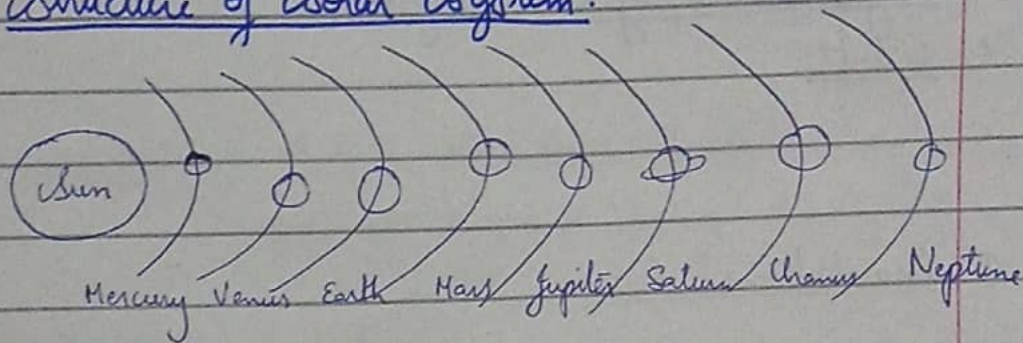 Structure of Solar System.
Sun
Mercury Venus Earth Mars Jupiter Saturn Uranus Neptune